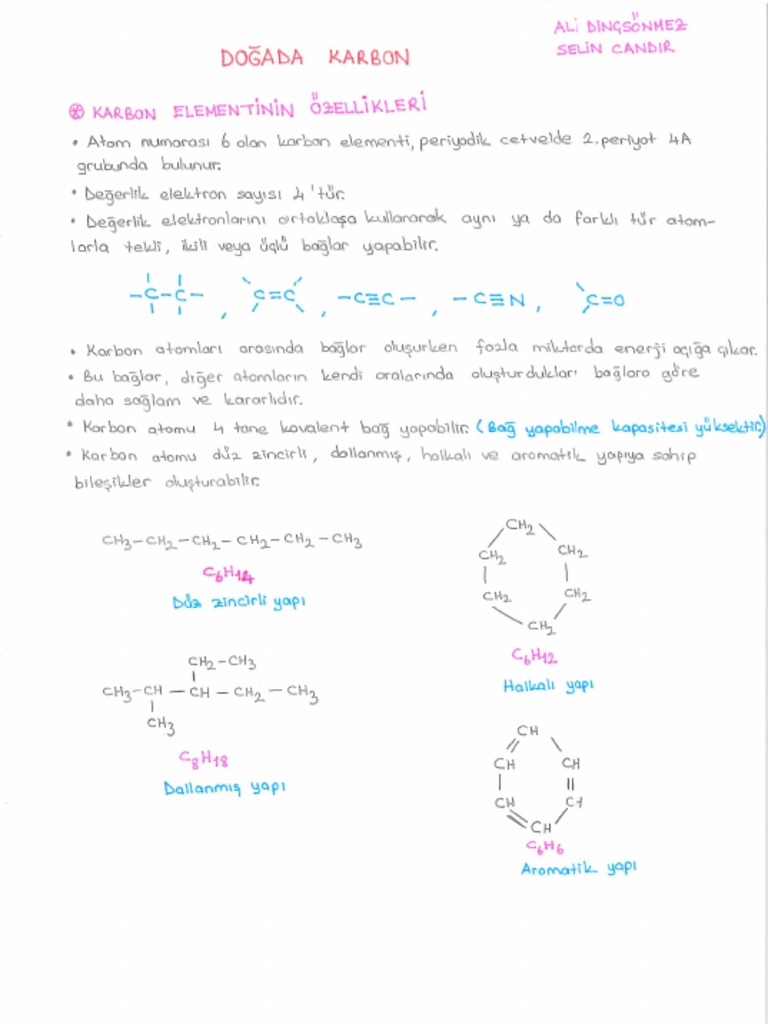 ALİ DİNÇSÖNMEZ
SELİN CANDIR
DOĞADA KARBON
KARBON ELEMENTİNİN ÖZELLİKLERİ
• Atom numarası 6 olan karbon elementi, periyodik cetvelde 2. periyot 4A
grubunda bulunur.
• Değerlik elektron sayısı 4'tür.
• Değerlik elektronlarını ortaklaşa kullanarak aynı ya da farklı tür atom-
larla tekli, ikili veya üçlü bağlar yapabilir.
-C-C-, C=C, -C≡C-, -C≡N, C=O
• Karbon atomları arasında bağlar oluşurken fazla miktarda enerji açığa çıkar.
• Bu bağlar, diğer atomların kendi aralarında oluşturdukları bağlara göre
daha sağlam ve kararlıdır.
• Karbon atomu 4 tane kovalent bağ yapabilir. (Bağ yapabilme kapasitesi yüksektir.)
• Karbon atomu düz zincirli, dallanmış, halkalı ve aromatik yapıya sahip
bileşikler oluşturabilir.
CH3-CH2-CH2-CH2-CH2-CH3
C6H14
Düz zincirli yapı
CH2
CH2 CH2
CH2 CH2
CH2
C6H12
Halkalı yapı
CH2-CH3
CH3-CH-CH-CH2-CH3
CH3
C8H18
Dallanmış yapı
CH
CH CH
CH CH
CH
C6H6
Aromatik yapı